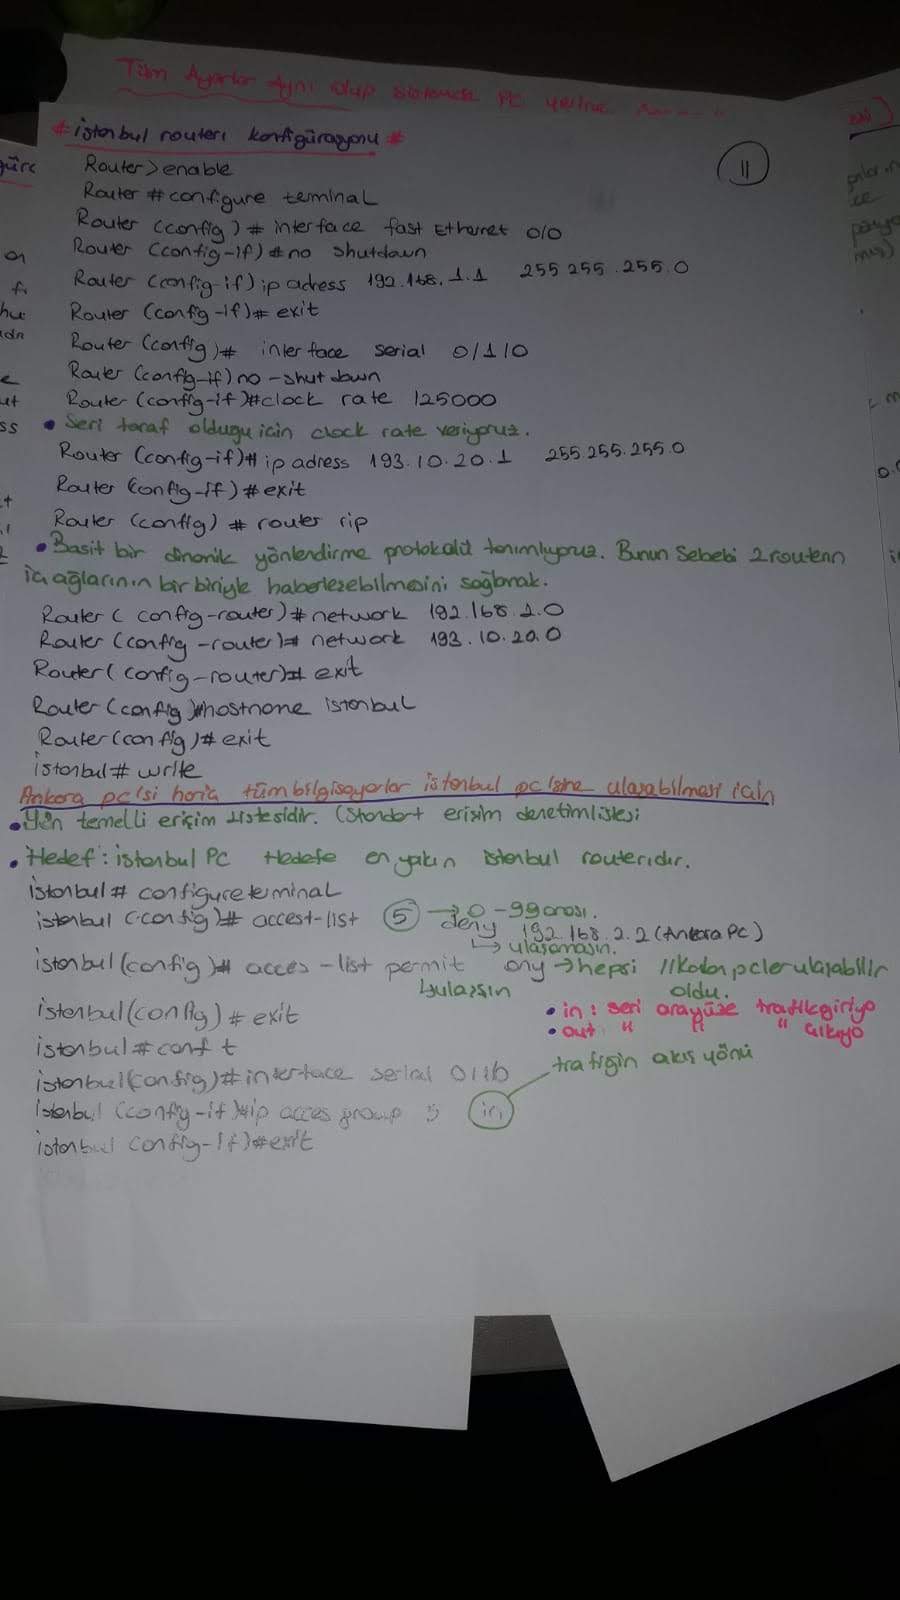 Tüm Ayarlar Aynı olup sistemde PC yerine
# istanbul routerı konfigürasyonu #
11
Router>enable
Router #configure teminal
Router (config) # interface fast Ethernet 0/0
Router (config-if) #no shutdown
Router (config-if) ip adress 192.168.1.1 255 255.255.0
Router (config-if)# exit
Router (config)# interface serial 0/1/0
Router (config-if) no-shutdown
Router (config-if)#clock rate 125000
• Seri taraf olduğu için clock rate veriyoruz.
Router (config-if)# ip adress 193.10.20.1 255.255.255.0
Router (config-if) #exit
Router (config) # router rip
• Basit bir dinamik yönlendirme protokolü tanımlıyoruz. Bunun Sebebi 2 routerın
iç ağlarının bir biriyle haberleşebilmesini sağlamak.
Router ( config-router) # network 192.168.1.0
Router (config-router)# network 193.10.20.0
Router( config-router)# exit
Router (config)#hostname istanbul
Router(config)# exit
istanbul# write
Ankara pc'si hariç tüm bilgisayarlar istanbul pc'sine ulaşabilmesi için
• Yön temelli erişim listesidir. (Standart erişim denetim listesi
• Hedef : istanbul PC Hedefe en yakın istanbul routerıdır.
istanbul# configure teminal
istanbul (config)# accest-list 5 → 0-99 arası. deny 192.168.2.2 (Ankara PC)
↳ ulaşamasın.
istanbul(config)# acces-list permit any → hepsi //Kalan pcler ulaşabilir
↳ulaşsın oldu.
istanbul(config) # exit
• in : seri arayüze trafik giriyo
• out : " " " çıkıyo
istanbul#conf t
trafiğin akış yönü
istanbul(config)#interface serial 0/1/0
istanbul (config-if)#ip acces group 5 in
istanbul config-if)#exit